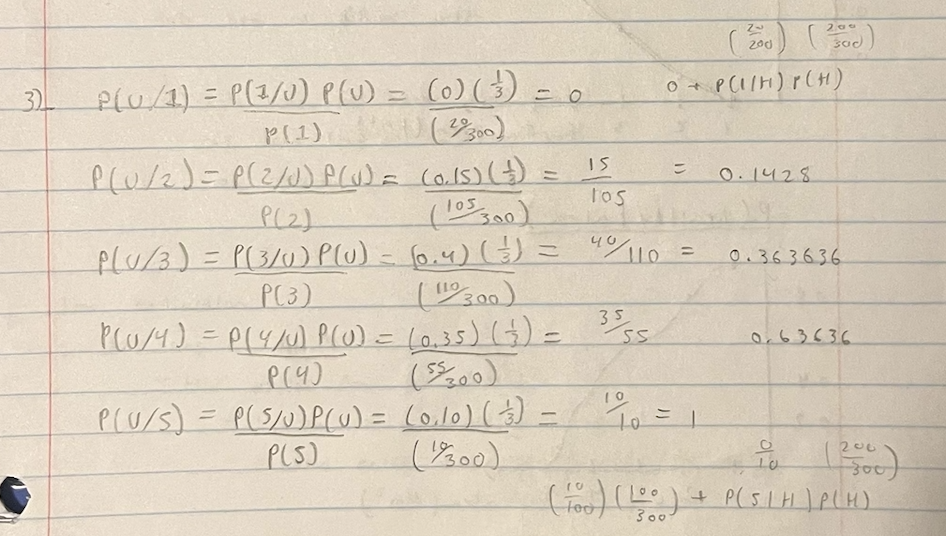 (20/200) (200/300)
3) P(U/1) = P(1/U) P(U) / P(1) = (0)(1/3) / (20/300) = 0 0 + P(1|H) P(H)
P(U/2) = P(2/U) P(U) / P(2) = (0.15)(1/3) / (105/300) = 15/105 = 0.1428
P(U/3) = P(3/U) P(U) / P(3) = (0.4)(1/3) / (110/300) = 40/110 = 0.363636
P(U/4) = P(4/U) P(U) / P(4) = (0.35)(1/3) / (55/300) = 35/55 0.63636
P(U/5) = P(5/U) P(U) / P(5) = (0.10)(1/3) / (10/300) = 10/10 = 1
0/10 (200/300)
(10/100) (100/300) + P(5|H) P(H)